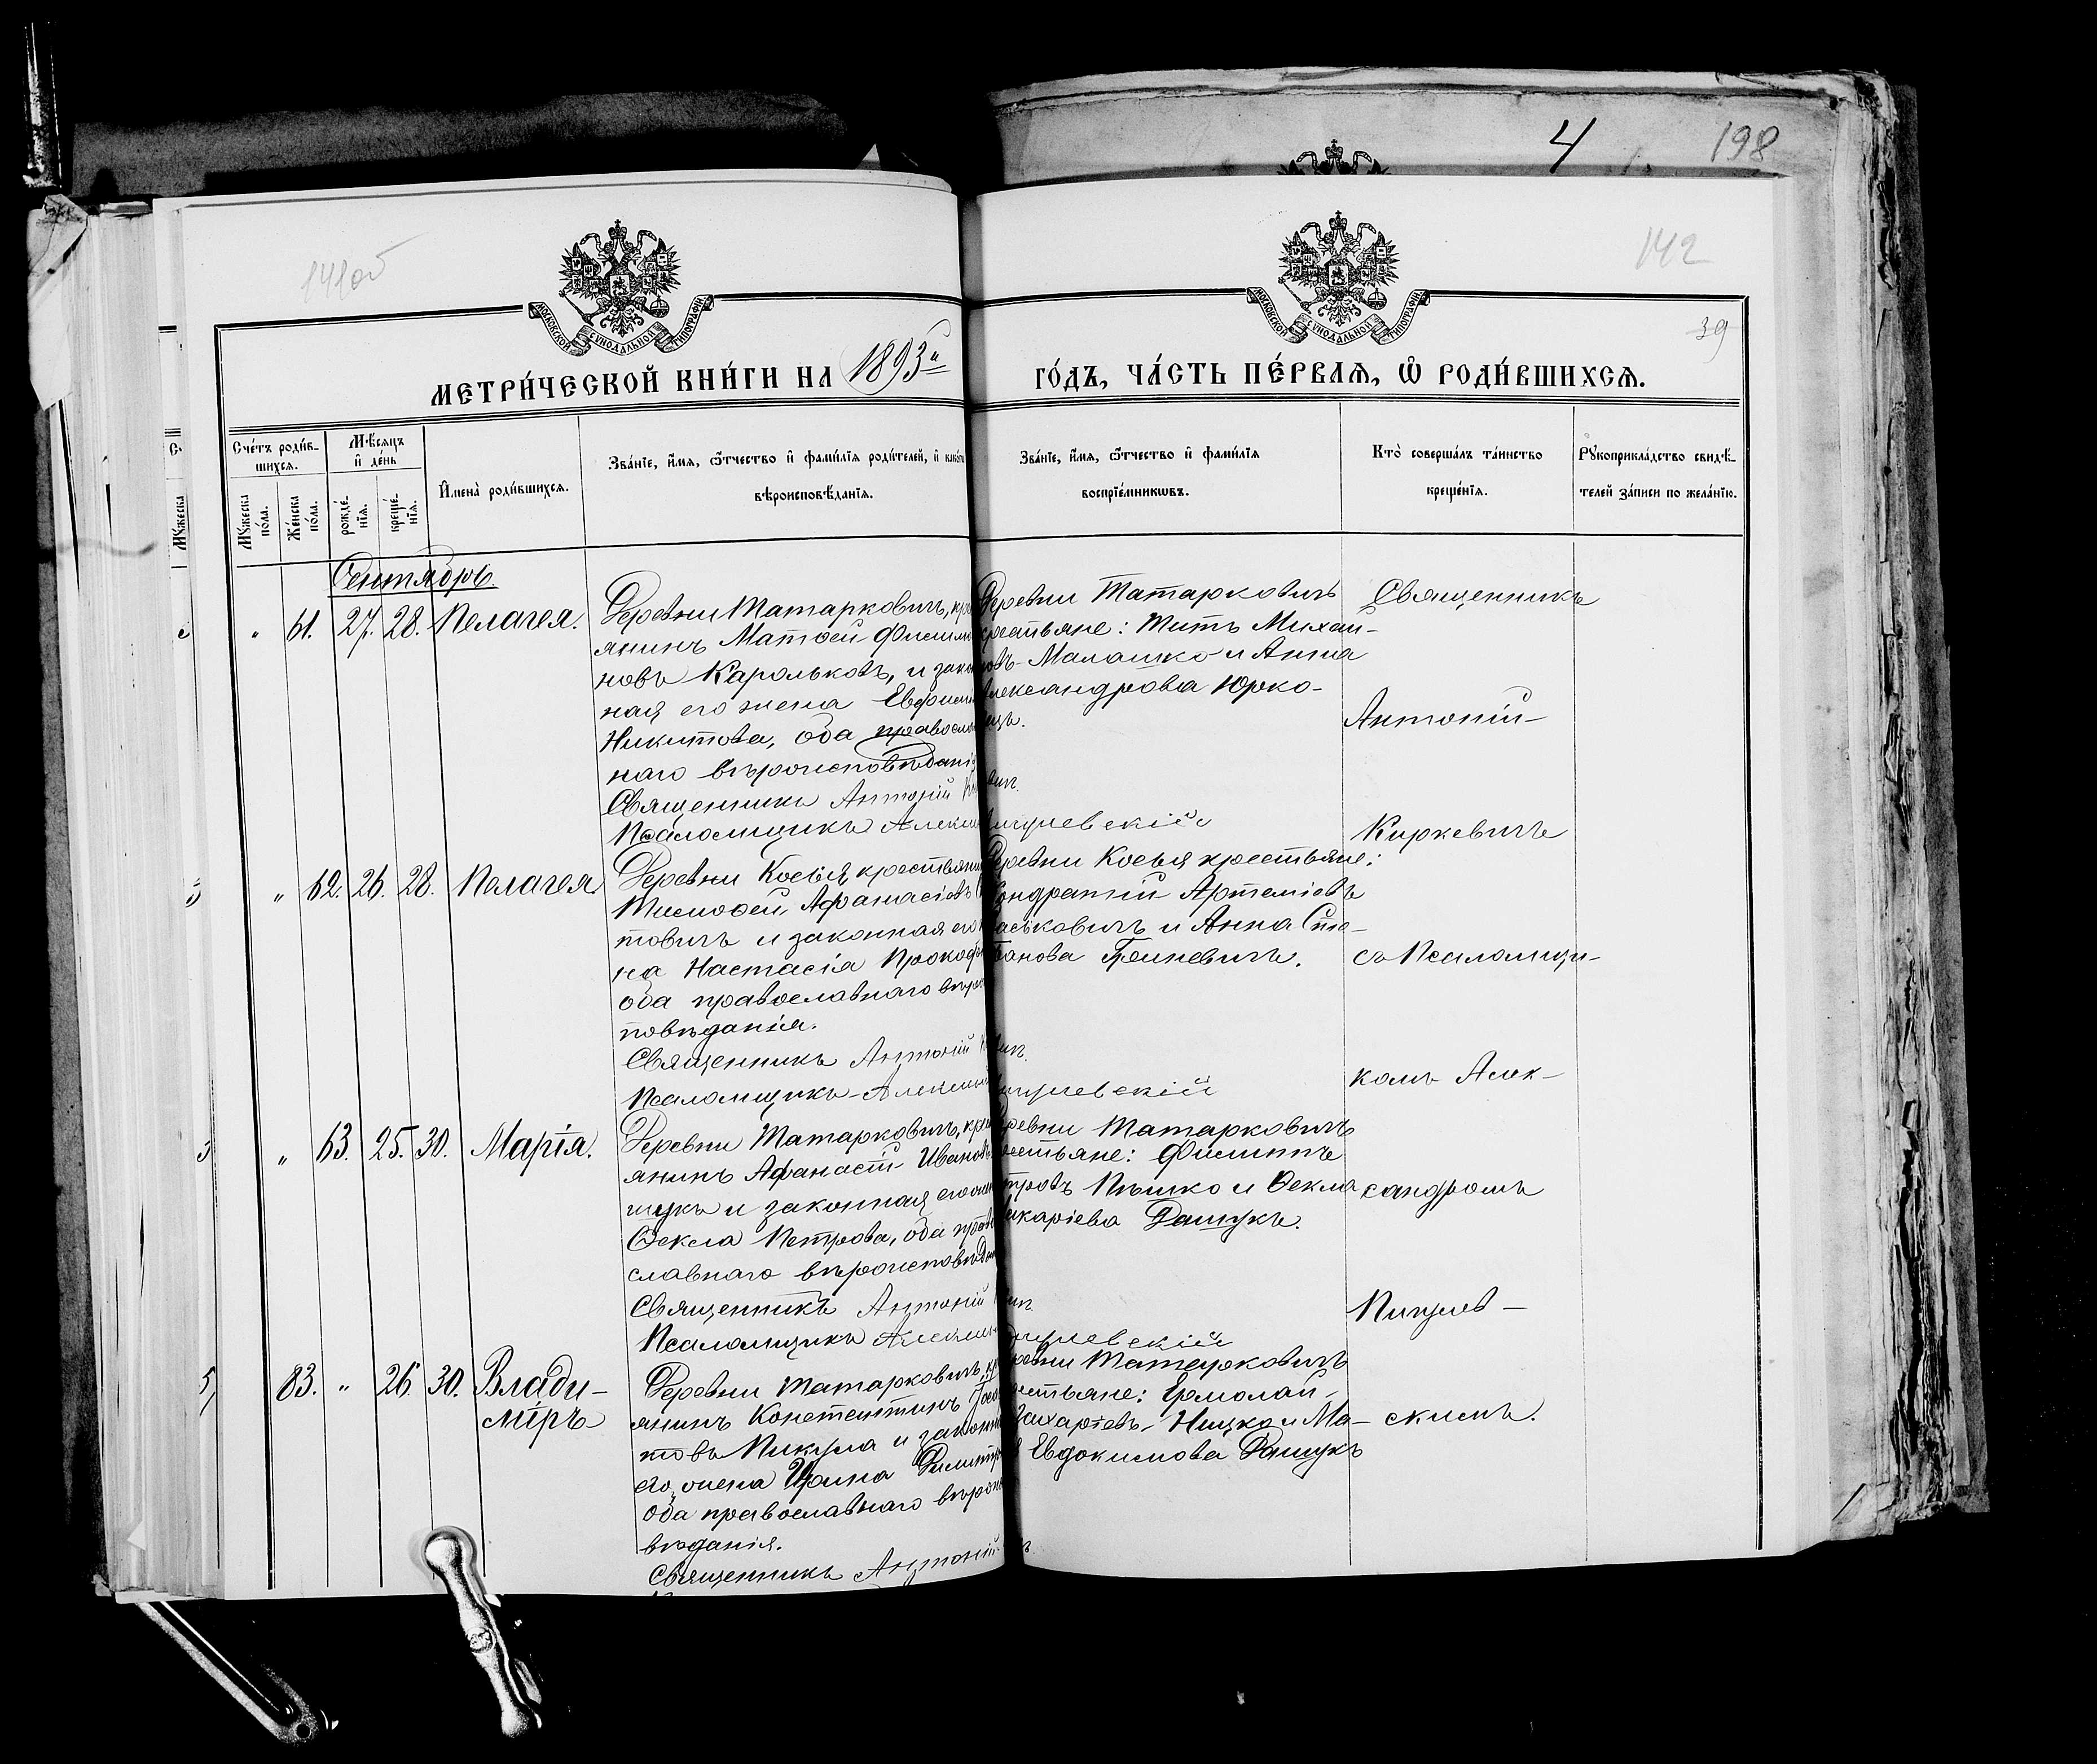 4
198
141об
142
39
МОСКОВСКОЙ СѴНОДАЛЬНОЙ ТИПОГРАФІИ
МОСКОВСКОЙ СѴНОДАЛЬНОЙ ТИПОГРАФІИ
МЕТРИ́ЧЕСКОЙ КНИ́ГИ НА 1893й
ГО́ДЪ, ЧА́СТЬ ПЕ́РВАѦ, Ѡ҆ РОДИ́ВШИХСѦ.
Сче́тъ роди́в-
шихсѧ.
Мꙋжеска по́ла.
Же́нска по́ла.
Мѣ́сѧцъ
и҆ де́нь
рожде́-
нїѧ.
креще́-
нїѧ.
И҆мена̀ роди́вшихсѧ.
Зва́нїе, и҆́мѧ, ѻ҆́тчество и҆ фами́лїѧ роди́телей, и҆
вѣроисповѣ́данїѧ.
Зва́нїе, и҆́мѧ, ѻ҆́тчество и҆ фами́лїѧ
воспрїе́мникѡвъ.
Кто̀ соверша́лъ та́инство
креще́нїѧ.
Рꙋкоприкла́дство свидѣ́-
телей за́писи по жела́нїю.
Сентябрь.
„ 61. 27. 28. Пелагея.
Деревни Татарковичъ, кре
янинъ Матѳей Филимо
новъ Карольковъ, и закон
ная его жена Евфимі
Никитова, оба правосла
наго вѣроисповѣданія
Священникъ Антоній
Псаломщикъ Алекса
Деревни Татарковичъ
крестьяне: Титъ Михаи-
овъ Малашко и Анна
Александрова Юрко-
ецъ.
вич.
игулевскій
Священникъ
Антоній
Киркевичъ
съ Псаломщи-
комъ Алек-
сандромъ
Пигулев-
скимъ.
„ 62. 26. 28. Пелагея
Деревни Косья, крестьяни
Тимоѳей Афанасіевъ
товичъ и законная его
на Настасія Прокоф
оба православнаго вѣро
повѣданія.
Священникъ Антоній
Псаломщикъ Алекса
Деревни Косья крестьяне:
Кондратій Артеміевъ
аськовичъ и Анна Сте-
панова Гриневичъ.
вич.
игулевскій
„ 63. 25. 30. Марія.
Деревни Татарковичъ, кре
янинъ Афанасій Иванов
шукъ и законная его
Ѳекла Петрова, оба право
славнаго вѣроисповѣдан
Священникъ Антоній
Псаломщикъ Алекса
ревни Татарковичъ
рестьяне: Филиппъ
тровъ Пышко и Ѳекла
акаріева Дашукъ.
вич.
игулевскій
83. „ 26. 30. Влади-
міръ
Деревни Татарковичъ, кр
янинъ Константинъ
ковъ Пикула и законн
его жена Ирина Димитр
оба православнаго вѣроис
вѣданія.
Священникъ Антоній
ревни Татарковичъ
рестьяне: Ермолай
Захаріевъ Ницко и Ма-
Евдокимова Дашукъ